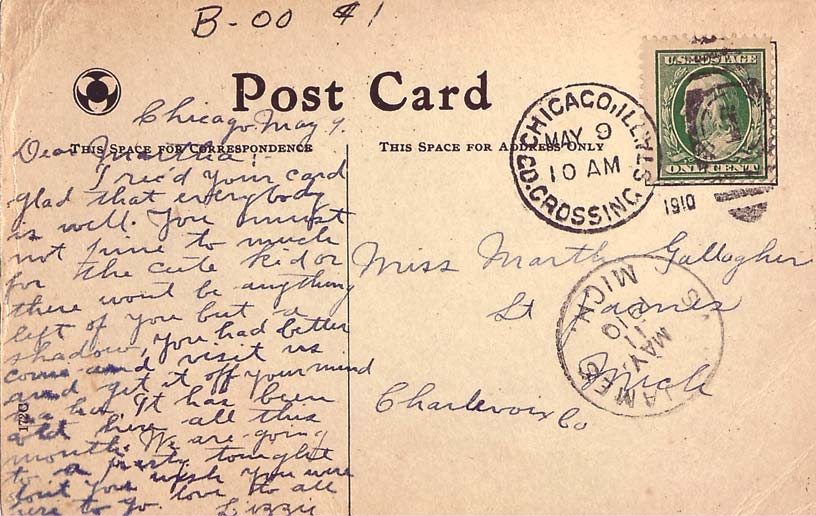 B-00 41
Post Card
Chicago May 9.
THIS SPACE FOR CORRESPONDENCE
THIS SPACE FOR ADDRESS ONLY
Dear Martha:-
I rec'd your card
glad that everybody
is well. You must
not pine to much
for the cute kid or
there wont be anything
left of you but a
shadow, you had better
come and visit us
and get it off your mind
ha ha. It has been
cold here all this
month. We are going
to a party tonight
don't you wish you were
here to go. love to all
Lizzie
172G
CHICAGO, ILL. STA.
MAY 9
10 AM
GD. CROSSING
1910
U.S. POSTAGE
ONE CENT
Miss Martha Gallagher
St James
Mich
Charlevoix Co
ST. JAMES MICH.
MAY
11
10